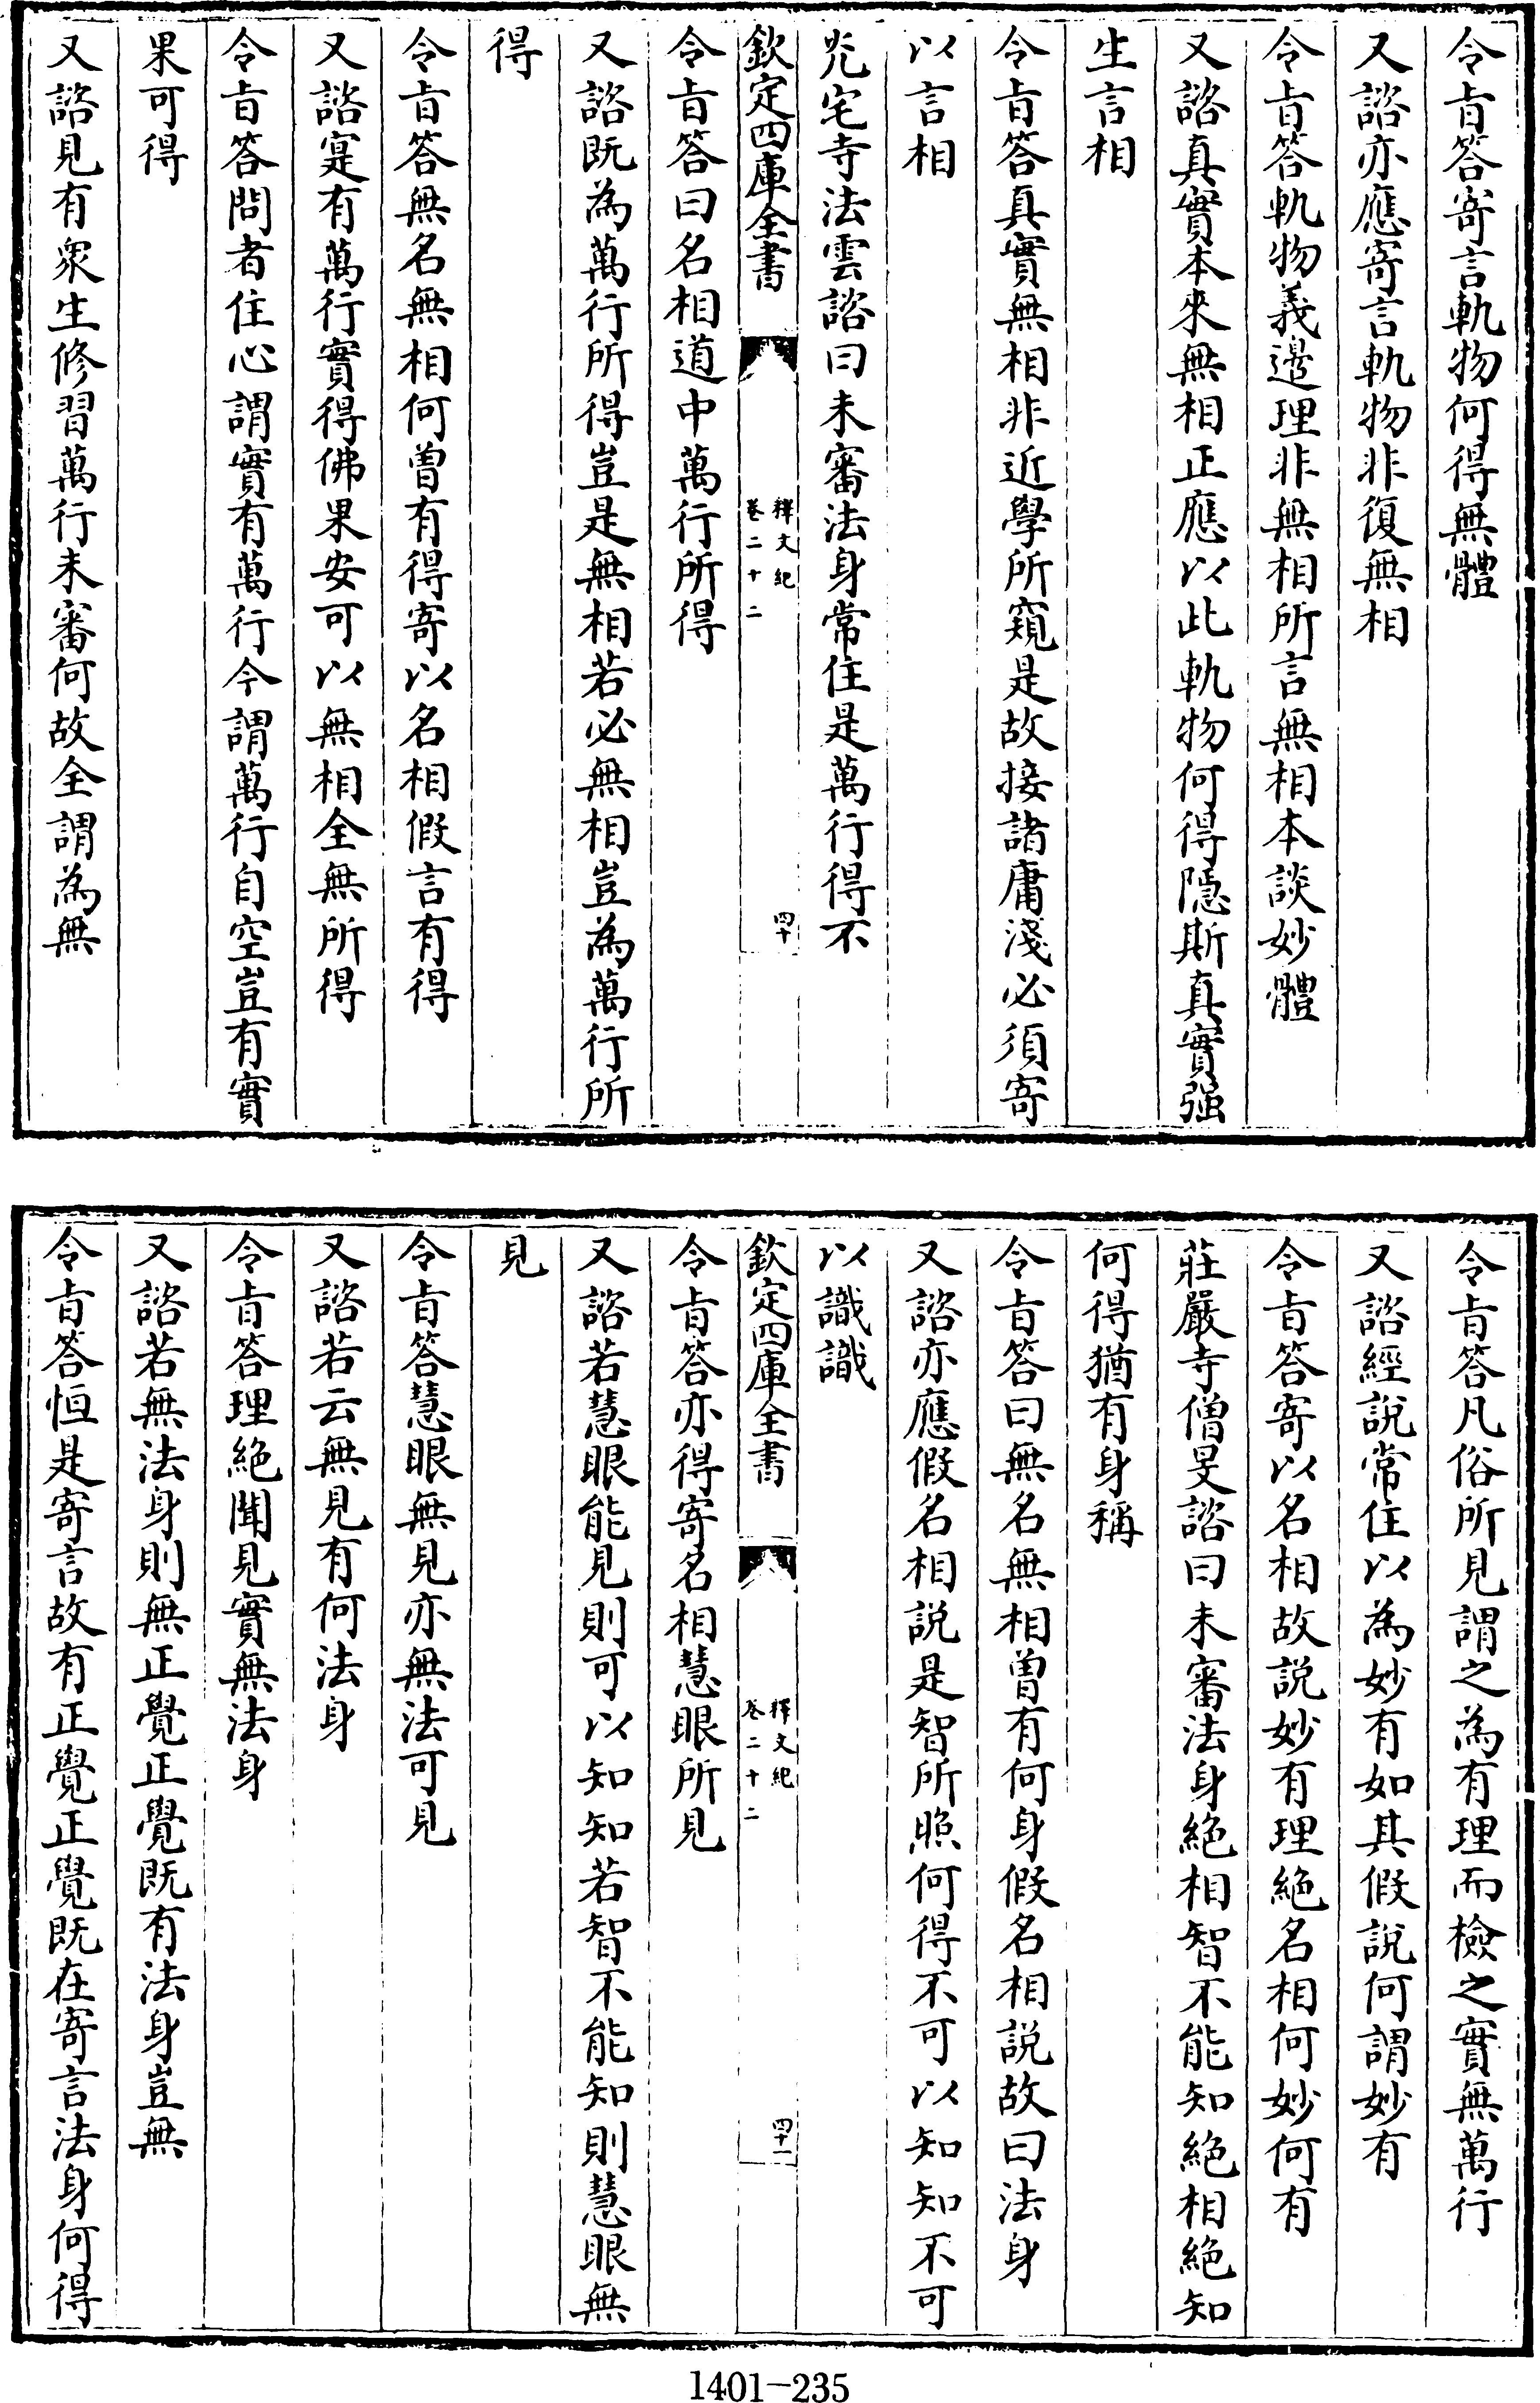 令㫖答寄言軌物何得無體
又諮亦應寄言軌物非復無相
令㫖答軌物義邊理非無相所言無相本談妙體
又諮真實本來無相正應以此軌物何得隱斯真實强
生言相
令㫖答真實無相非近學所窺是故接諸庸淺必須寄
以言相
光宅寺法雲諮曰未審法身常住是萬行得不
欽定四庫全書
釋文紀
卷二十二
四十
令㫖答曰名相道中萬行所得
又諮既為萬行所得豈是無相若必無相豈為萬行所
得
令㫖答無名無相何曽有得寄以名相假言有得
又諮寔有萬行實得佛果安可以無相全無所得
令㫖答問者住心謂實有萬行今謂萬行自空豈有實
果可得
又諮見有衆生修習萬行未審何故全謂為無
令㫖答凡俗所見謂之為有理而檢之實無萬行
又諮經說常住以為妙有如其假說何謂妙有
令㫖答寄以名相故說妙有理絶名相何妙何有
莊嚴寺僧旻諮曰未審法身絶相智不能知絶相絶知
何得猶有身稱
令㫖答曰無名無相曽有何身假名相說故曰法身
又諮亦應假名相說是智所照何得不可以知知不可
以識識
欽定四庫全書
釋文紀
卷二十二
四十一
令㫖答亦得寄名相慧眼所見
又諮若慧眼能見則可以知知若智不能知則慧眼無
見
令㫖答慧眼無見亦無法可見
又諮若云無見有何法身
令㫖答理絶聞見實無法身
又諮若無法身則無正覺正覺既有法身豈無
令㫖答恒是寄言故有正覺正覺既在寄言法身何得
1401-235